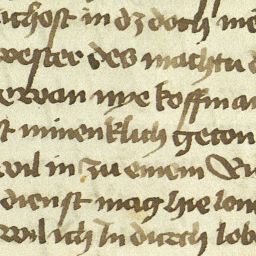 ichost in dz doch me
wester des machtu d
erwan nye koffman
st minenklich geton
wil in zu einem
dienst mag hie lon
wil ich In durch lob